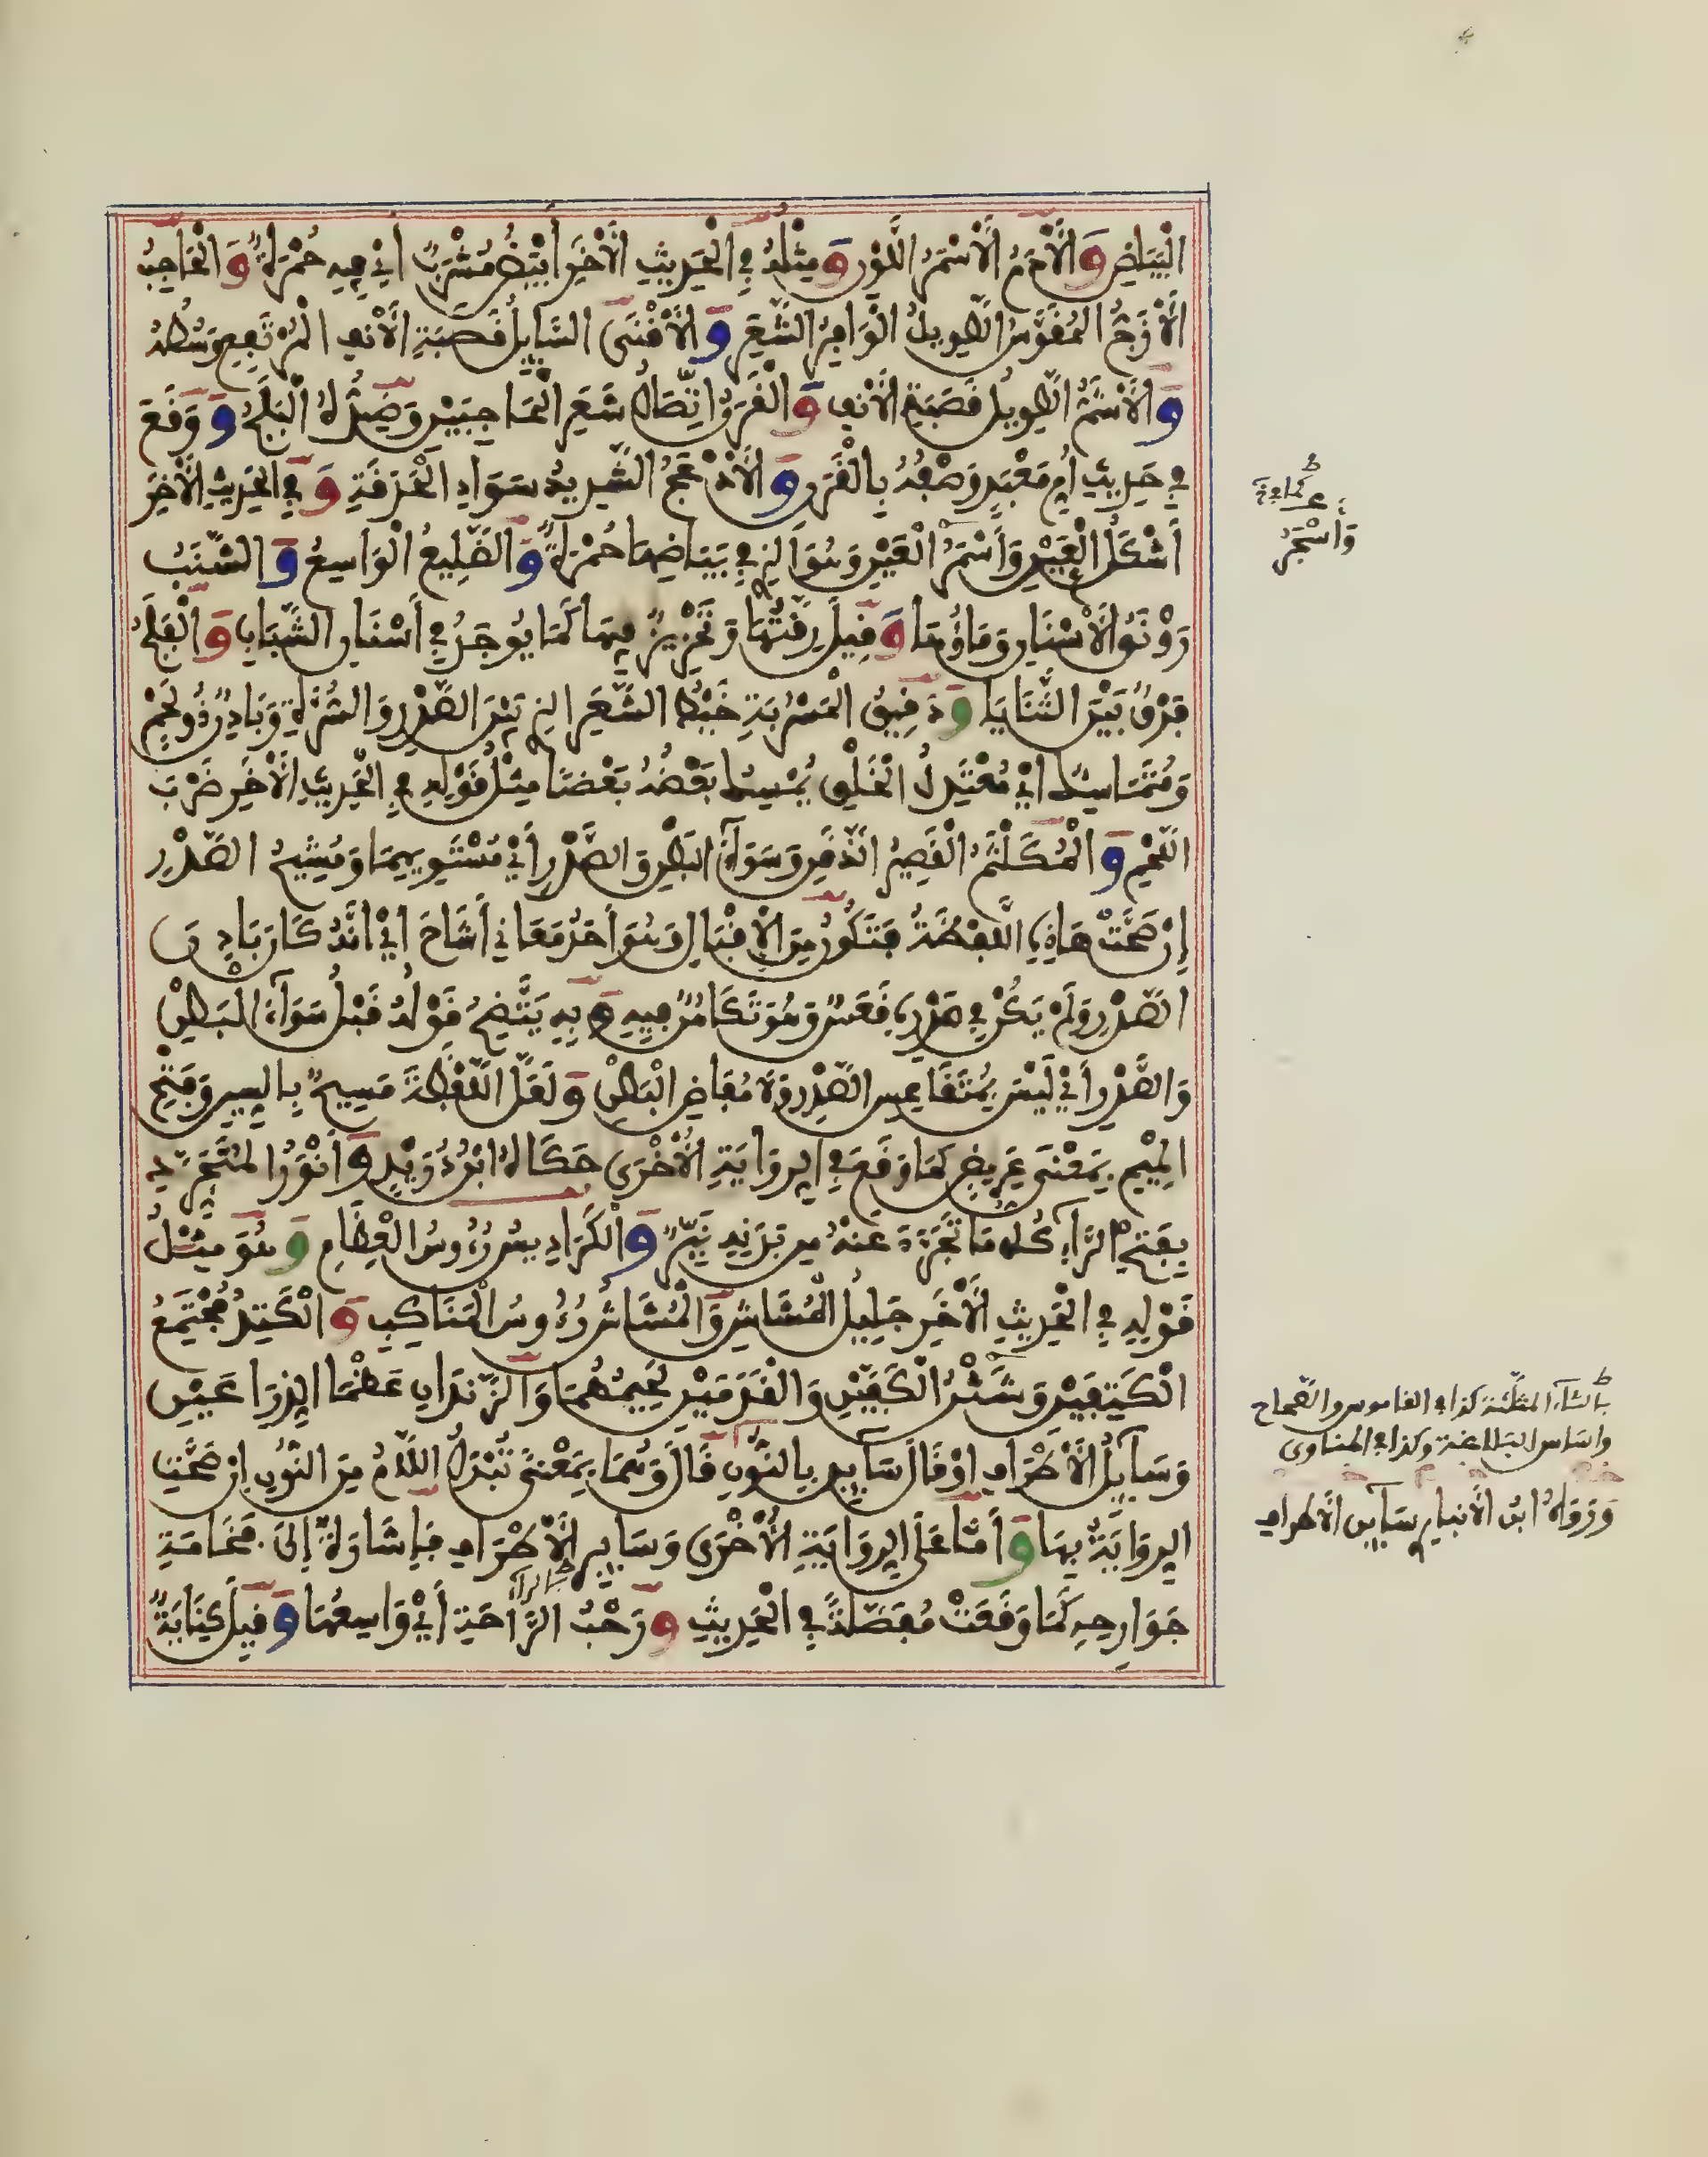 الْبَيَاضِ وَالْأَدَمُ الْأَسْمَرُ اللَّوْنِ وَمِثْلُهُ فِي الْحَدِيثِ الْأَخَرِ أَبْيَضُ مُشْرَبٌ أَيْ فِيهِ حُمْرَةٌ وَالْحَاجِبُ
الْأَزَجُّ الْمُقَوَّسُ الطَّوِيلُ الْوَافِرُ الشَّعَرِ وَالْأَقْنَى السَّايِلُ قَصَبَةِ الْأَنْفِ الْمُرْتَفِعِ وَسْطُهُ
وَالْأَشَمُّ الطَّوِيلُ قَصَبَةِ الْأَنْفِ وَالْقَرَنُ اتِّصَالُ شَعَرِ الْحَاجِبَيْنِ وَضِدُّهُ الْبَلَجُ وَوَقَعَ
فِي حَدِيثِ أُمِّ مَعْبَدٍ وَصْفُهُ بِالْقَرَنِ وَالْأَدْعَجُ الشَّدِيدُ سَوَادِ الْحَدَقَةِ وَفِي الْحَدِيثِ الْأَخَرِ
أَشْكَلُ الْعَيْنِ وَأَسْمَرُ الْعَيْنِ وَهُوَ الَّذِي فِي بَيَاضِهَا حُمْرَةٌ وَالضَّلِيعُ الْوَاسِعُ وَالشَّنَبُ
رَوْنَقُ الْأَسْنَانِ وَمَاؤُهَا وَقِيلَ رِقَّتُهَا وَتَحْزِيزٌ فِيهَا كَمَا يُوجَدُ فِي أَسْنَانِ الشَّبَابِ وَالْفَلَجُ
فَرْقٌ بَيْنَ الثَّنَايَا وَدَقِيقُ الْمَسْرُبَةِ خَيْطُ الشَّعَرِ الَّذِي بَيْنَ الصَّدْرِ وَالسُّرَّةِ وَبَادِنٌ ذُو لَحْمٍ
وَمُتَمَاسِكٌ أَيْ مُعْتَدِلُ الْخَلْقِ يُمْسِكُ بَعْضُهُ بَعْضًا مِثْلُ قَوْلِهِ فِي الْحَدِيثِ الْأَخَرِ ضَرْبَ
اللَّحْمِ وَالْمُكَلْثَمُ الْقَصِيرُ الذَّقَنِ وَسَوَاءُ الْبَطْنِ وَالصَّدْرِ أَيْ مُسْتَوِيهِمَا وَمُشِيحُ الصَّدْرِ
إِنْ صَحَّتْ هَاذِهِ اللَّفْظَةُ فَتَكُونُ مِنَ الْإِقْبَالِ وَهُوَ أَحَدُ مَعَانِي أَشَاحَ أَيْ أَنَّهُ كَانَ بَادِيَ
الصَّدْرِ وَلَمْ يَكُنْ فِي صَدْرِهِ قَعَسٌ وَهُوَ تَطَامُنٌ فِيهِ وَبِهِ يَتَّضِحُ قَوْلُهُ قَبْلُ سَوَآءُ الْبَطْنِ
وَالصَّدْرِ أَيْ لَيْسَ بِمُتَقَاعِسِ الصَّدْرِ وَلَا مُفَاضِ الْبَطْنِ وَلَعَلَّ اللَّفْظَةَ مَسِيحٌ بِالسِّينِ وَفَتْحِ
الْمِيمِ بِمَعْنَى عَرِيضٍ كَمَا وَقَعَ فِي الرِّوَايَةِ الْأُخْرَى حَكَاهُ ابْنُ دُرَيْدٍ وَأَنْوَرُ الْمُتَجَرَّدِ
بِفَتْحِ الرَّاءِ كُلُّ مَا تَجَرَّدَ عَنْهُ مِن بَدَنِهِ نَيِّرٌ وَالْكَرَادِيسُ رُءُوسُ الْعِظَامِ وَهُوَ مِثْلُ
قَوْلِهِ فِي الْحَدِيثِ الْأَخَرِ جَلِيلُ الْمُشَاشِ وَالْمُشَاشُ رُءُوسُ الْمَنَاكِبِ وَالْكَتِدُ مُجْتَمِعُ
الْكَتِفَيْنِ وَشَثْنُ الْكَفَّيْنِ وَالْقَدَمَيْنِ لَحِيمُهُمَا وَالزَّنْدَانِ عَظْمَا الذِّرَاعَيْنِ
وَسَآيِلُ الْأَطْرَافِ أَوْ قَالَ سَآيِنِ بِالنُّونِ قَالَ وَهُمَا بِمَعْنًى تُبْدَلُ اللَّامُ مِنَ النُّونِ إِنْ صَحَّتِ
الرِّوَايَةُ بِهَا وَأَمَّا عَلَى الرِّوَايَةِ الْأُخْرَى وَسَايِرِ الْأَطْرَافِ فَإِشَارَةٌ إِلَى فَخَامَةِ
جَوَارِحِهِ كَمَا وَقَعَتْ مُفَصَّلَةً فِي الْحَدِيثِ وَرَحْبُ الرَّاحَةِ أَيْ وَاسِعُهَا وَقِيلَ كِنَايَةٌ
وَاسْجَرُ
بالثاء المثلثة كذا في القاموس والصحاح
واساس البلاغة وكذا في المناوي
وَرَوَاهُ ابْنُ الْأَنبارِي سَآيِن الْأَطراف